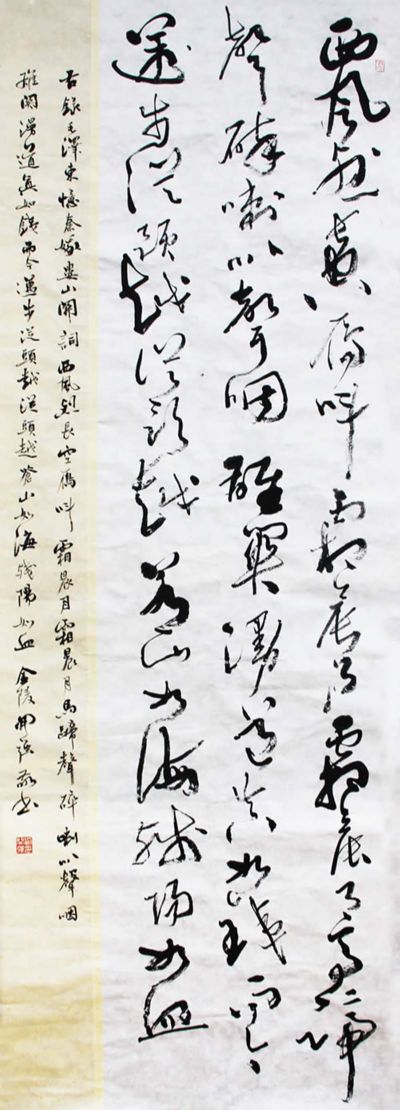 西風烈長空雁叫霜晨月霜晨月馬蹄
聲碎喇叭聲咽雄關漫道真如鐵而今
邁步從頭越從頭越蒼山如海殘陽如血
右錄毛澤東憶秦娥婁山關詞西風烈長空雁叫霜晨月霜晨月馬蹄聲碎喇叭聲咽
雄關漫道真如鐵而今邁步從頭越從頭越蒼山如海殘陽如血金陵書